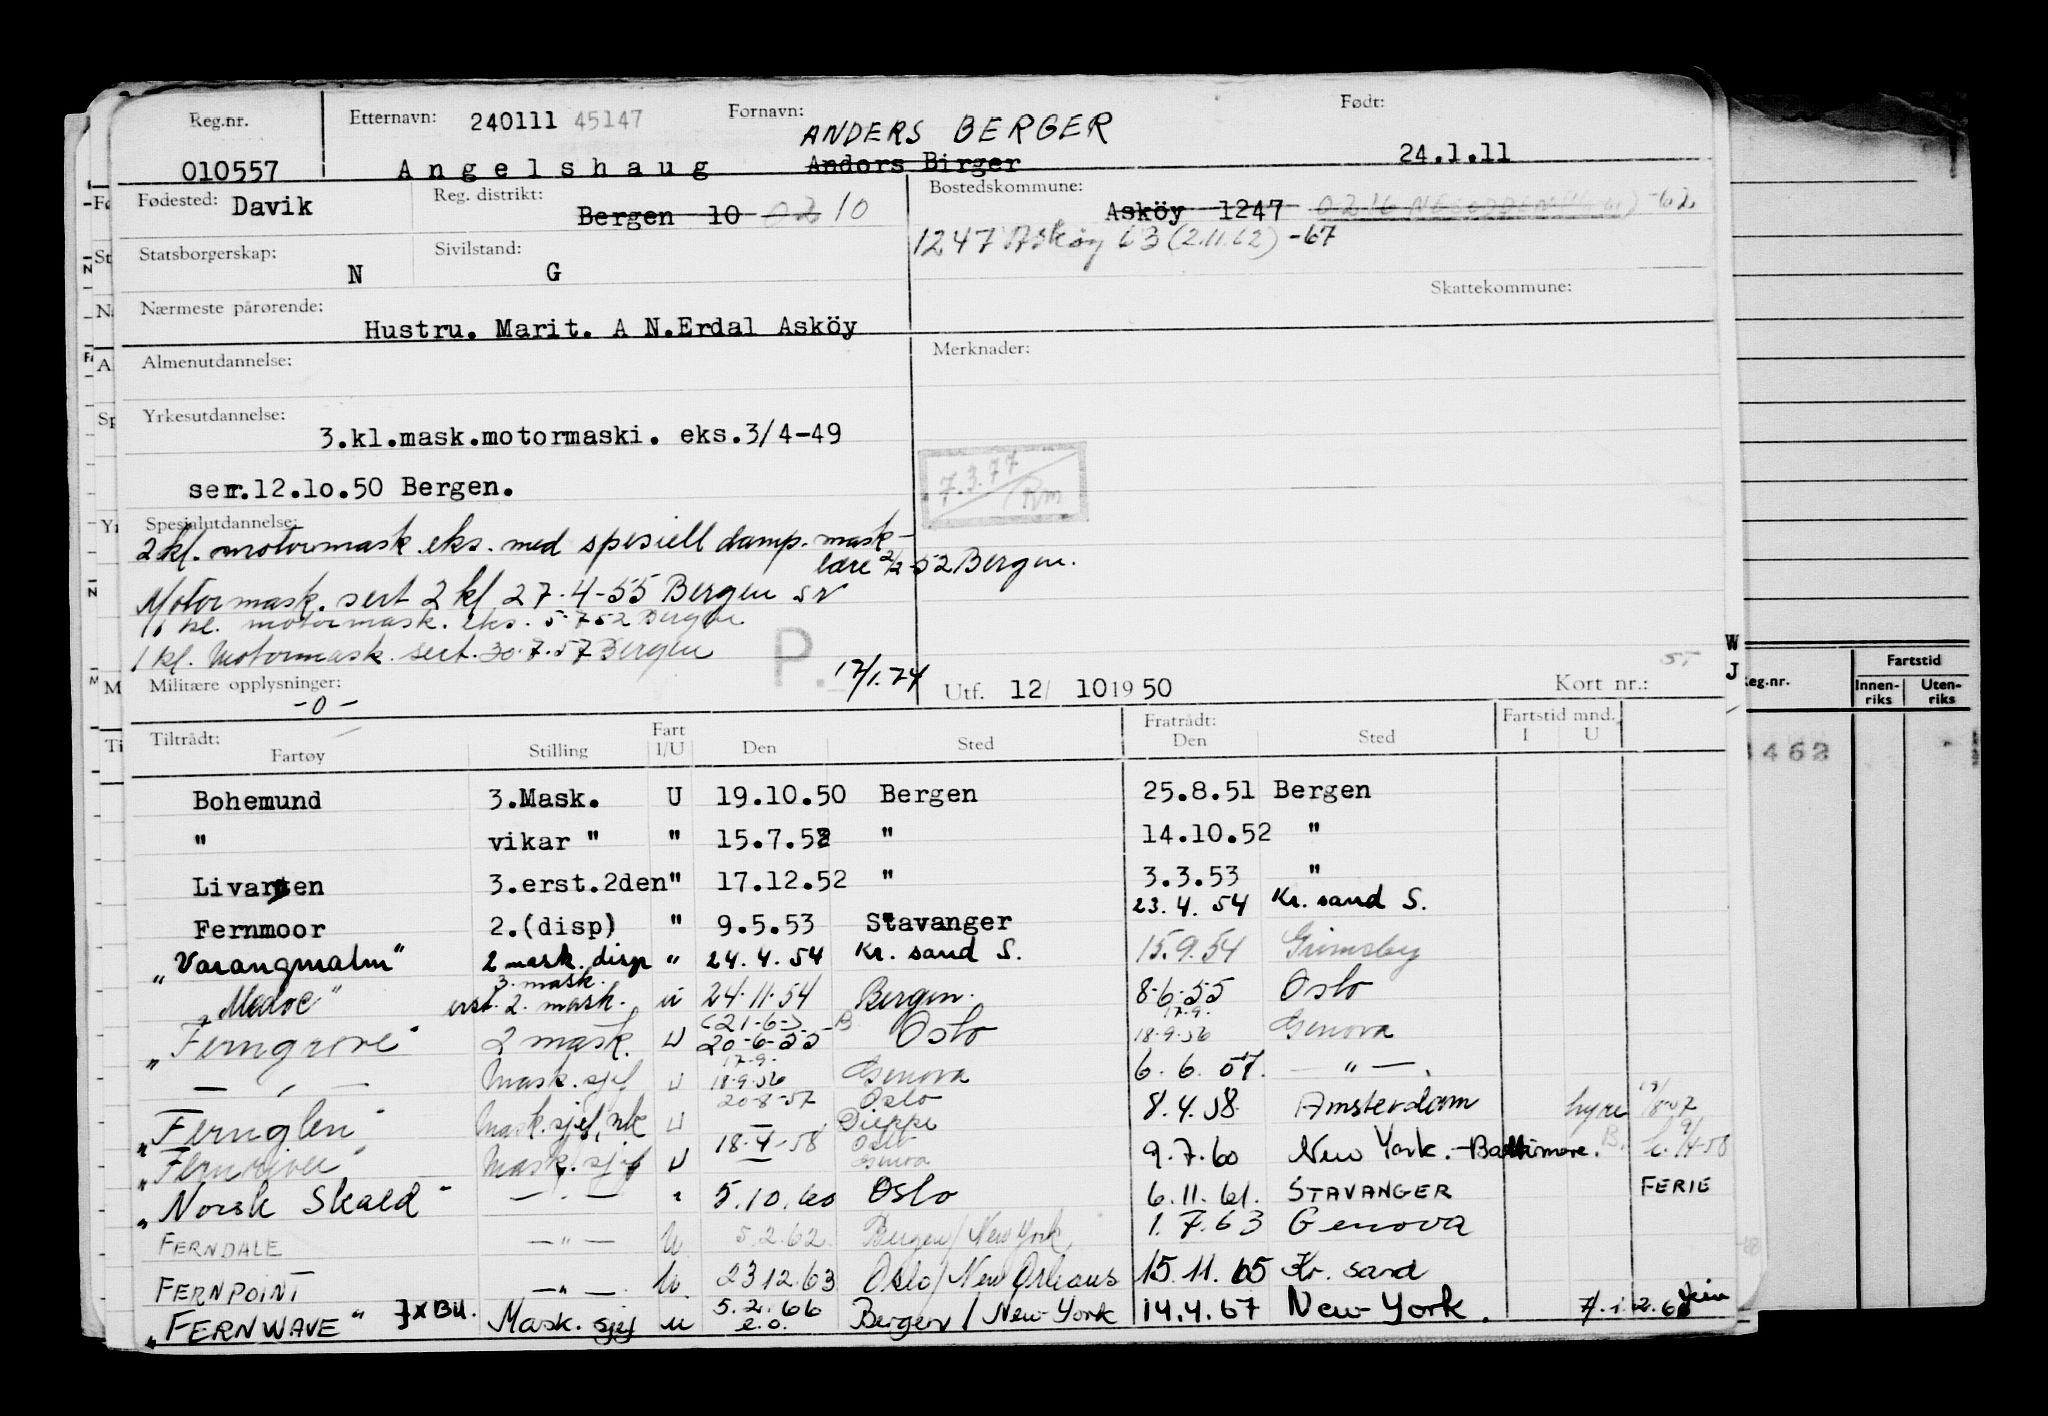 Reg.nr. Etternavn: 240111 45147 Fornavn: ANDERS BERGER Født:
010557 Angelshaug Andors Birger 24.1.11
Fødested: Davik Reg. distrikt: Bergen 10 02 10 Bostedskommune: Asköy 1247 0216 -62
1247 Askøy 63 (2.11.62) -67
Statsborgerskap: N Sivilstand: G
Nærmeste pårørende: Skattekommune:
Hustru. Marit. A N.Erdal Asköy
Almenutdannelse: Merknader:
Yrkesutdannelse:
3.kl.mask.motormaski. eks.3/4-49
7.3.77 Rm
serr.12.10.50 Bergen.
Spesialutdannelse:
2 kl. motormask. eks. med spesiell damp. mask-
lære 2/2-52 Bergen.
Motormask. sert 2 kl 27-4-55 Bergen
1 kl. motormask. eks. 5-7 52 Bergen
1 kl. Motormask. sert. 30.7.57 Bergen
P. 17/1.74
Militære opplysninger: Utf. 12/ 10 1950 Kort nr.:
-0-
Tiltrådt: Fratrådt: Fartstid mnd.
Fartøy Stilling Fart I/U Den Sted Den Sted I U
Bohemund 3.Mask. U 19.10.50 Bergen 25.8.51 Bergen
" vikar " " 15.7.52 " 14.10.52 "
Livarsen 3.erst.2den " 17.12.52 " 3.3.53 "
Fernmoor 2.(disp) " 9.5.53 Stavanger 23.4.54 Kr. sand S.
"Varangmalm" 2 mask. disp " 24.4.54 Kr. sand S. 15.9.54 Grimsby
"Medoc" 3. mask. erst. 2. mask. u 24.11.54 Bergen. 8-6-55 Oslo
"Ferngrove" 2 mask. U (21-6-) 20-6-55 Oslo 17.9. 18.9.56 Genova
— " — Mask. sjef U 17.9. 18.9.56 Genova 6.6.57. — " —
"Fernglen" Mask. sjef, nk U 20-8-57 Oslo Dieppe 8.4.58 Amsterdam hyre
"Fernriver" Mask. sjef U 18-4-58 Oslo Genova 9.7.60 New York. - Baltimore.
"Norsk Skald" — " — " 5.10.60 Oslo 6.11.61. STAVANGER FERIE
FERNDALE — " — U. 5.2.62 Bergen / New York 1.7.63 Genova
FERNPOINT — " — U. 23 12.63 Oslo / New Orleans 15.11.65 Kr. sand
"FERNWAVE" Mask. sjef u 5.2.66 e.o. Bergen / New York 14.4.67 New York.
W
J
Reg.nr. Fartstid
Innen-riks Uten-riks
462